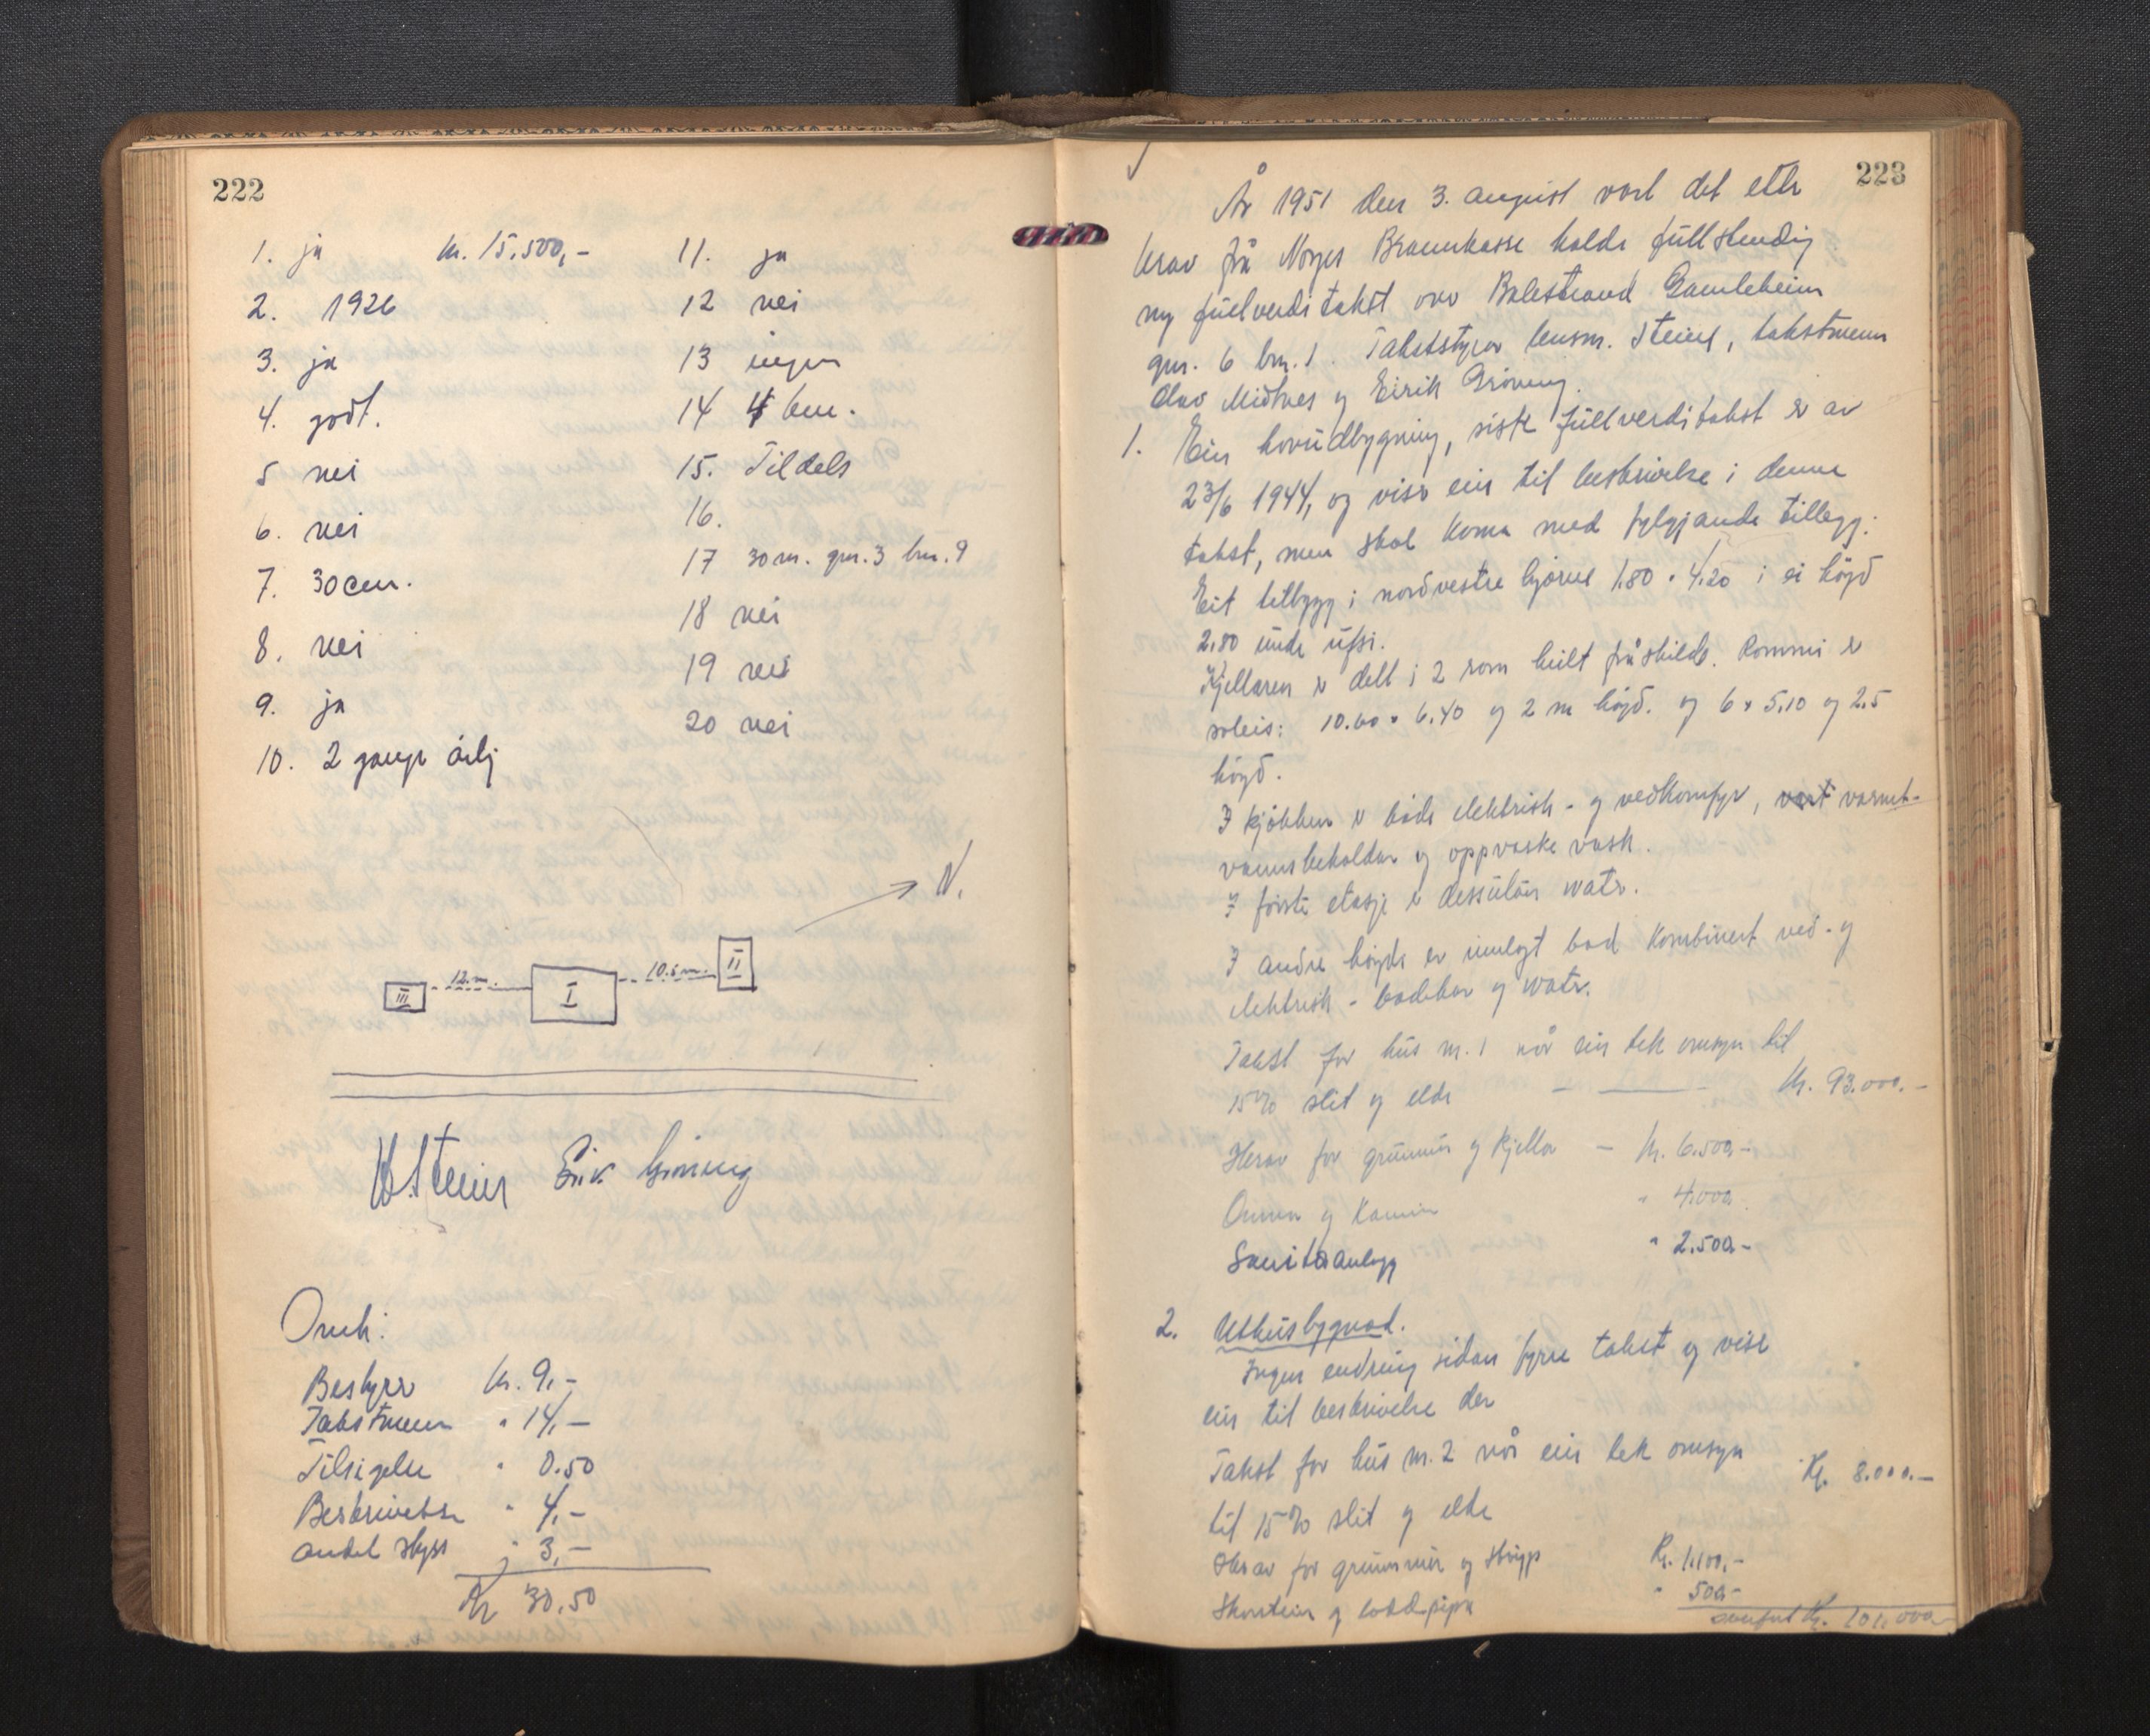 222
1. ja kr. 15.500,-
2. 1926
3. ja
4. godt.
5 nei
6. nei
7. 30 cm.
8. nei
9. ja
10. 2 gangr årlj
11. ja
12 nei
13 ingen
14 4 bu.
15. Tildels
16.
17 30 m. gnr. 3 bnr. 9
18 nei
19 nei
20 nei
N.
III 12 m. I 10.5 m. II
Steinr Eirik Grinning
Omk:
Bestyrer kr. 9,-
Takstmenn " 14,-
Tilsigelse " 0.50
Beskrivelse " 4,-
andel skyss " 3,-
Kr 30.50
223
År 1951 den 3. august vart det etter
krav frå Norges Brannkasse halde fullstendig
ny fullverditakst over Balestrand Gamleheim
gnr. 6 bnr. 1. Takststyrar lensm. Steine, takstmenn
Olav Midtnes og Eirik Grøning.
1. Ein hovudbygning, siste fullverditakst er av
23/6 1944, og viser ein til beskrivelse i denne
takst, men skal koma med fylgjande tillegg:
Eit tilbygg i nordvestre hjørne 1.80 x 4.20 i ei høgd
2.80 under ufsi.
Kjellaren er delt i 2 rom heilt fråskilde. Rommi er
soleis: 10.60 x 6.40 og 2 m høgd. og 6 x 5.10 og 2.5
høgd.
I kjøkken er både elektrisk- og vedkomfyr, vart varmt-
vannsbehaldar og oppvaske vask.
I første etasje er dessutan water.
I andre høgda er innlagt bad kombinert ved- og
elektrisk - badekar og water.
Takst for hus nr. 1 når ein tek omsyn til
15% slit og elde — Kr. 93.000.-
Herav for grunnmur og kjellar - kr. 6.500.-
Omnar og kamin " 4.000.
Sanitæranlegg " 2.500.-
2. Uthusbygnad.
Ingen endring sidan fyrre takst og viser
ein til beskrivelse der
Takst for hus nr. 2 når ein tek omsyn
til 15% slit og elde Kr. 8.000.-
Herav for grunnmur og Kr. 1.100,-
Skorstein og " 500.-
Kr. 101.000.-